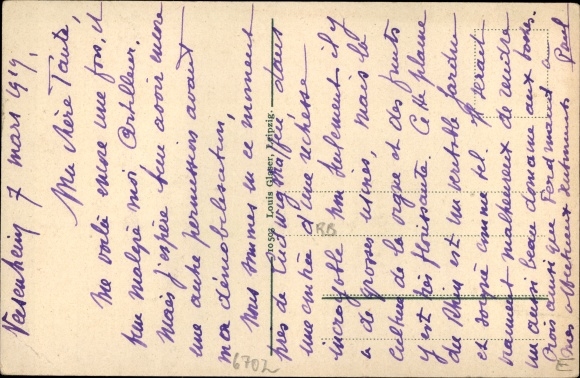 Vessenheim 7 mars 1919.
Ma chère Tante,
me voilà encore une fois, et
peu malgré moi Artilleur.
mais j'espère bien avoir encore
une autre permission avant
ma démobilisation,
nous sommes en ce moment
près de Ludwigshafen dans
une contrée d'une richesse
incroyable non seulement il y
a de grosses usines, mais la
culture de la vigne et des fruits
y est très florissante. Cette plaine
du Rhin est un véritable jardin
et soigné comme tel. Il serait
vraiment malheureux de rendre
un aussi beau domaine aux boches.
Crois ainsi que Ferdinand à
mes affectueux sentiments Paul
210503 Louis Glaser, Leipzig.
RB
6702